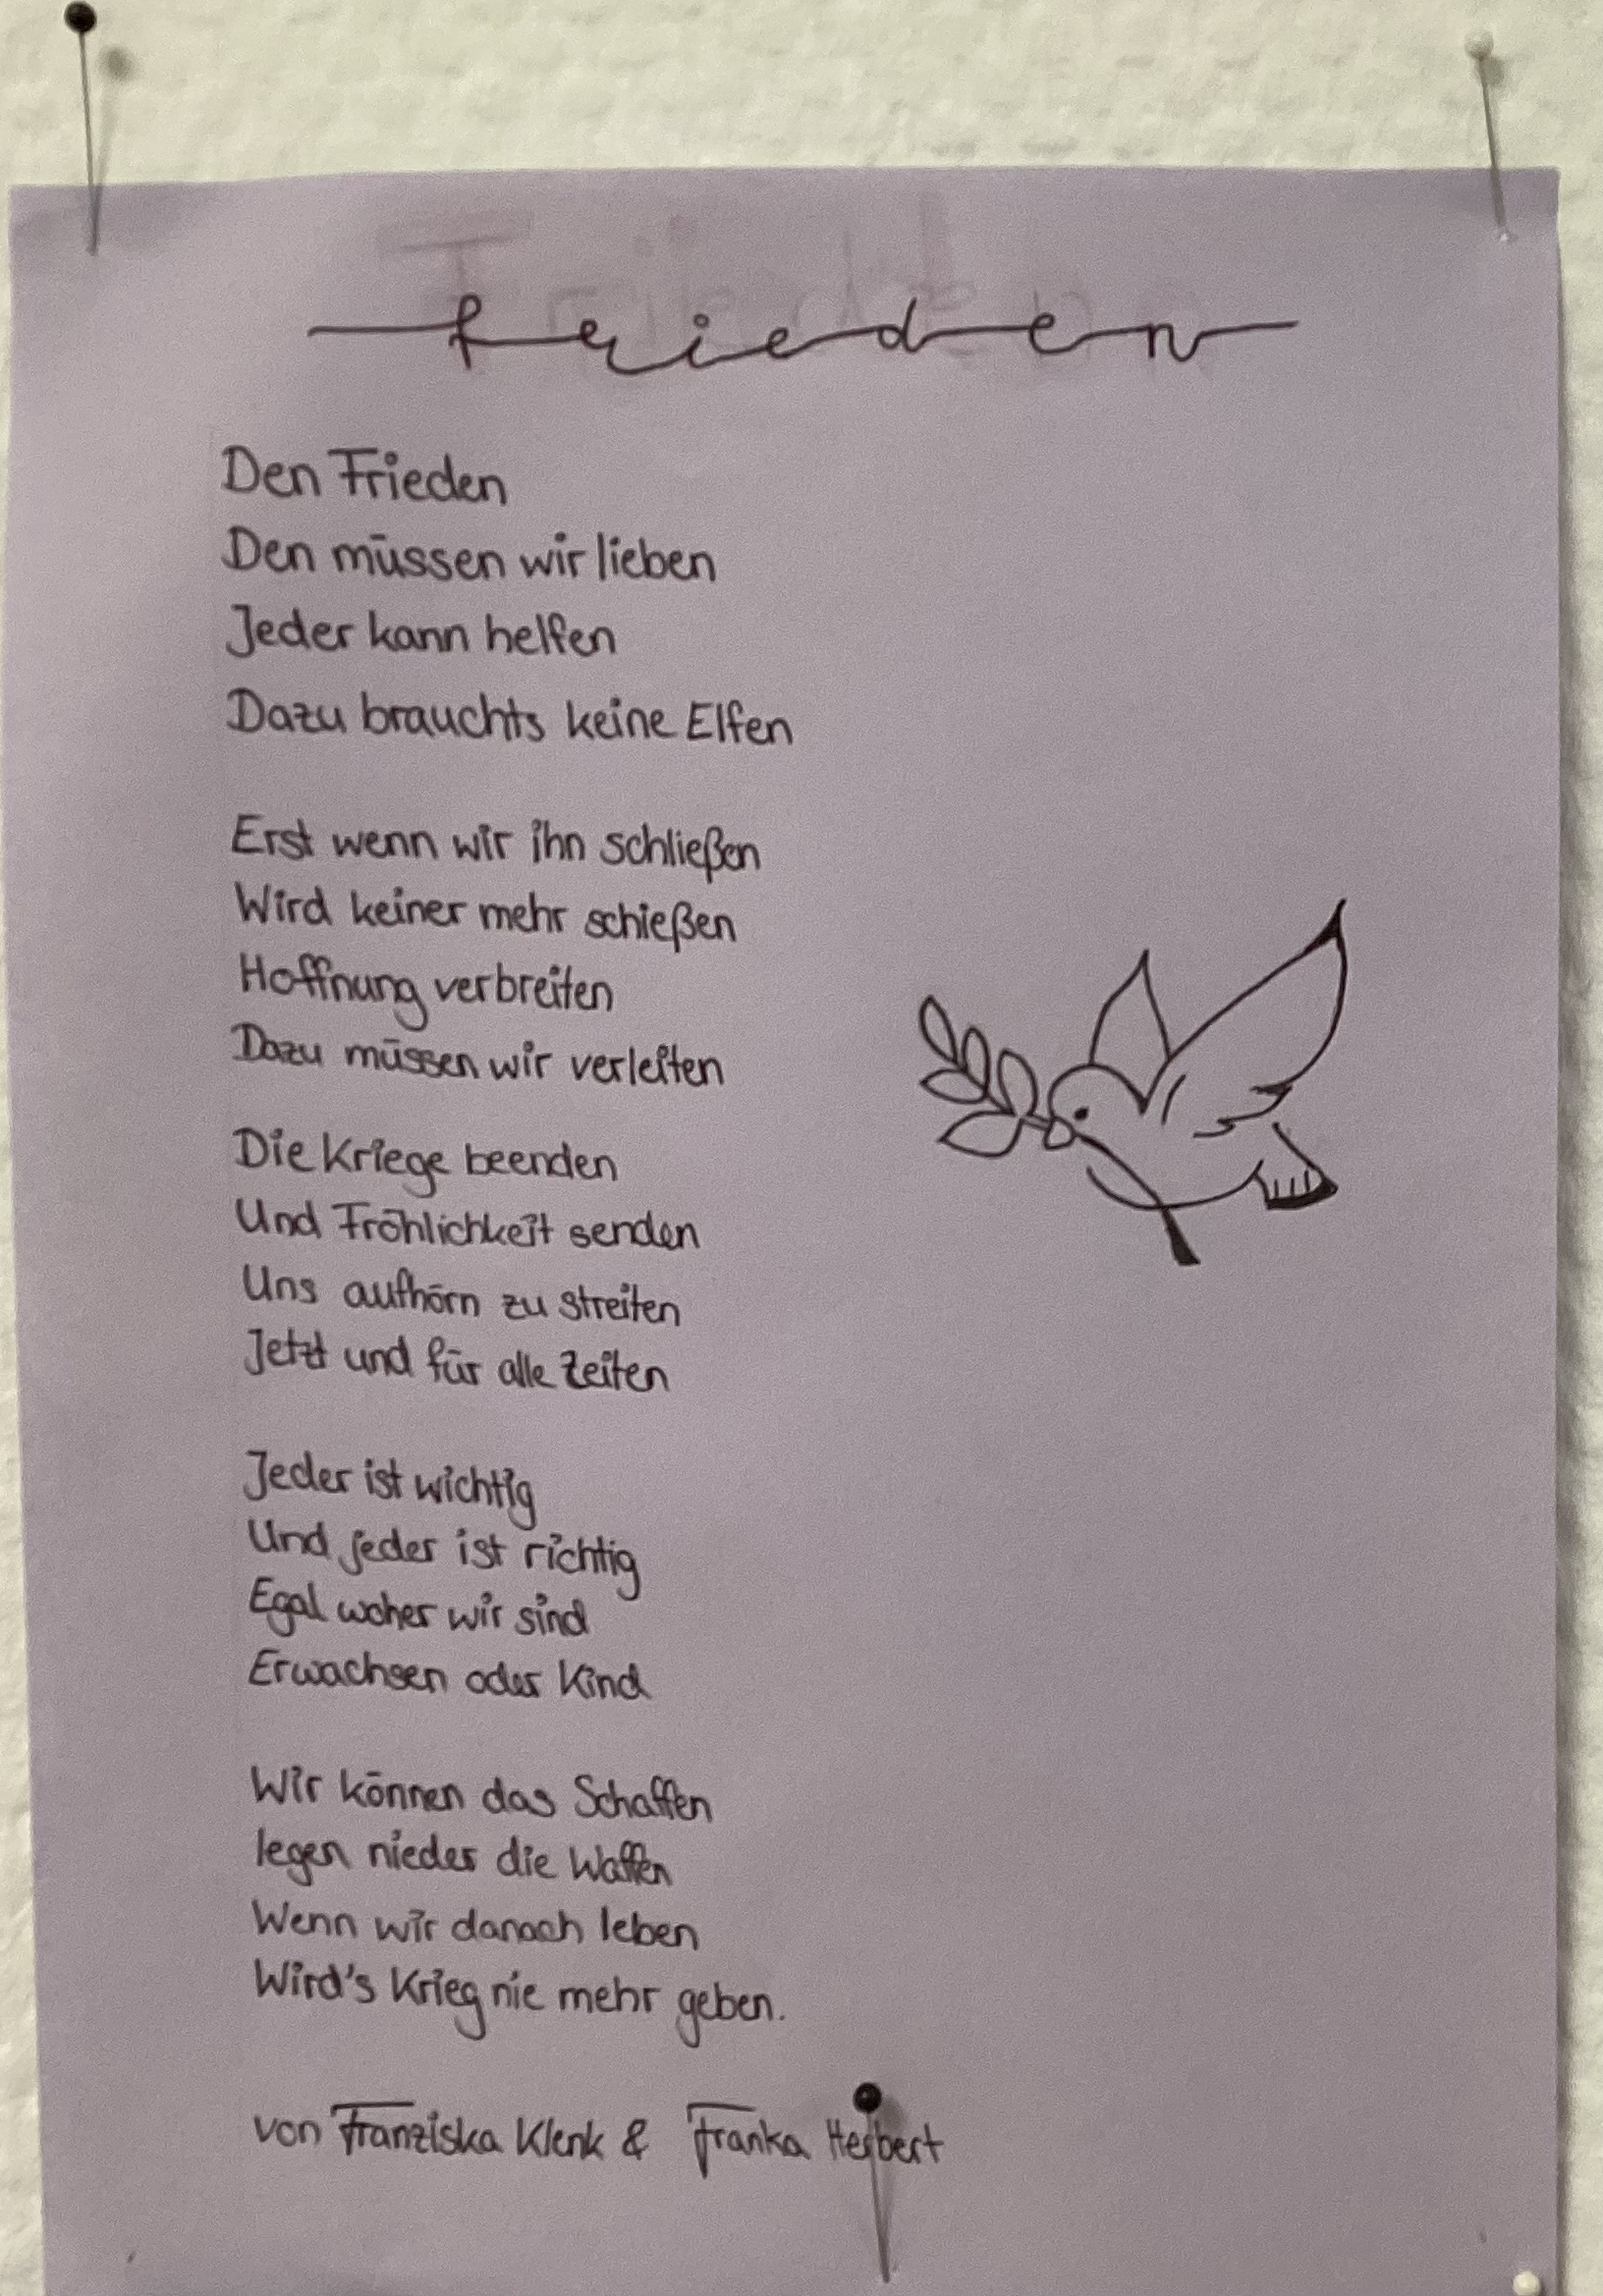 frieden
Den Frieden
Den müssen wir lieben
Jeder kann helfen
Dazu brauchts keine Elfen
Erst wenn wir ihn schließen
Wird keiner mehr schießen
Hoffnung verbreiten
Dazu müssen wir verleiten
Die Kriege beenden
Und Fröhlichkeit senden
Uns aufhörn zu streiten
Jetzt und für alle Zeiten
Jeder ist wichtig
Und jeder ist richtig
Egal woher wir sind
Erwachsen oder Kind
Wir können das Schaffen
legen nieder die Waffen
Wenn wir danach leben
Wird's Krieg nie mehr geben.
von Franziska Klenk & Franka Herbert